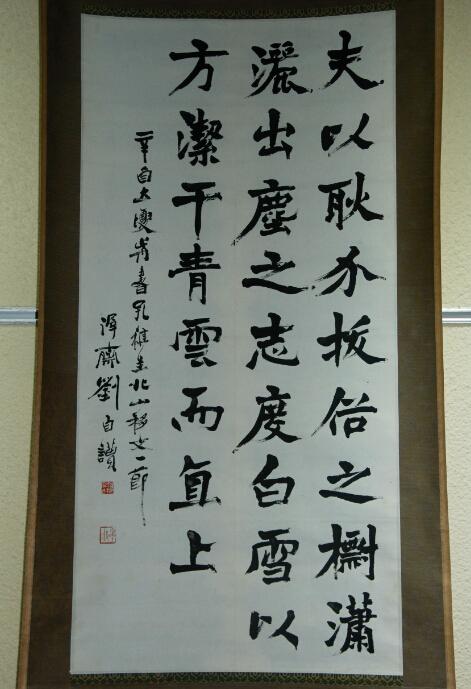 夫以耿介拔俗之標瀟
灑出塵之志度白雪以
方潔干青雲而直上
辛酉立夏前書孔稚圭北山移文一節
齋劉自讀